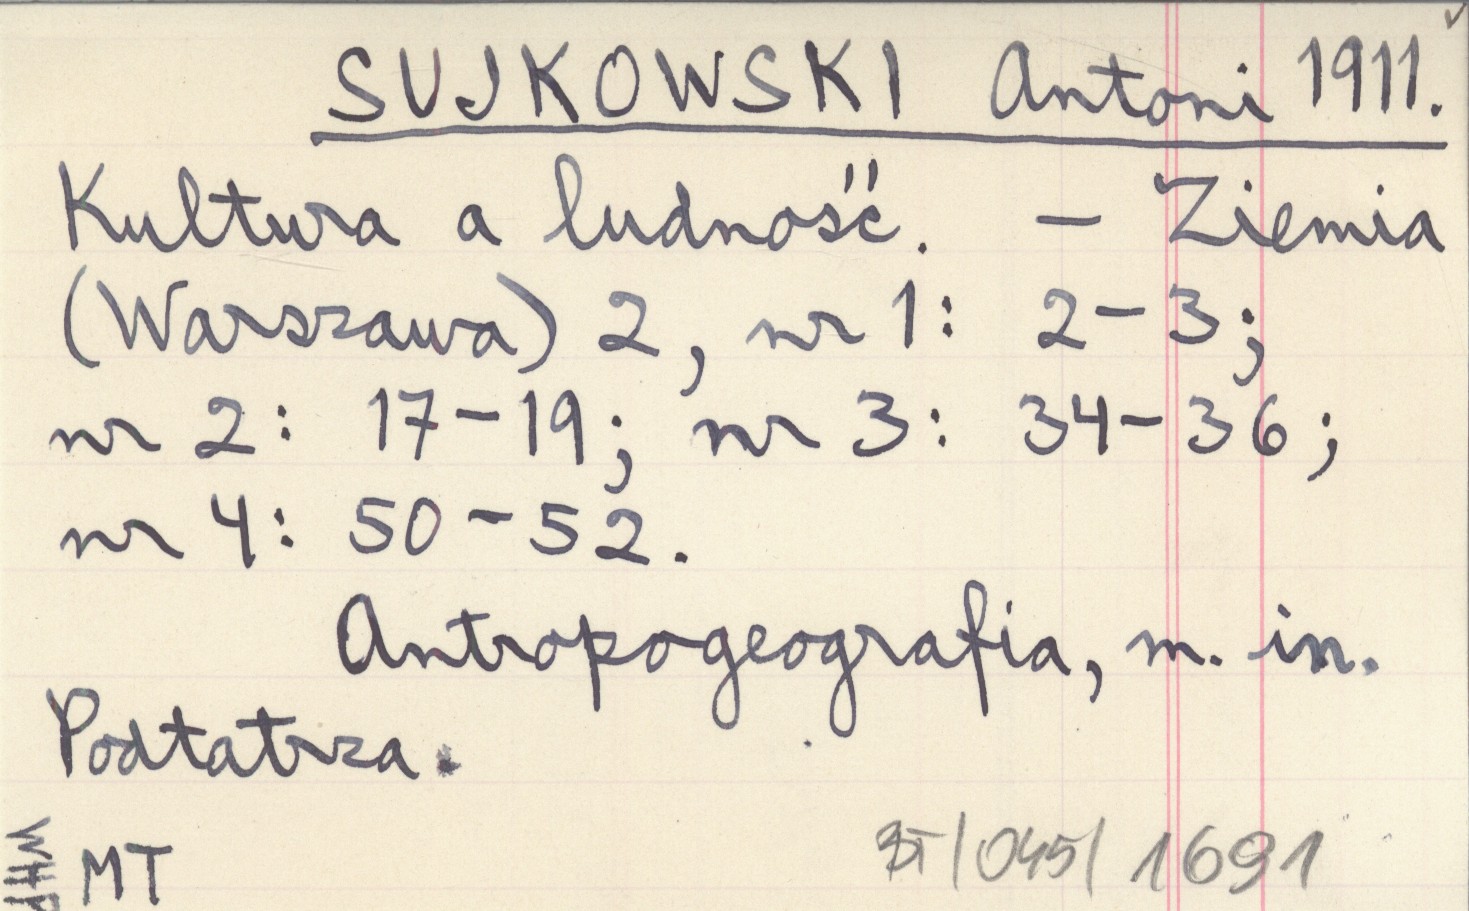 SUJKOWSKI Antoni 1911.
Kultura a ludność. – Ziemia
(Warszawa) 2, nr 1: 2–3;
nr 2: 17–19; nr 3: 34–36;
nr 4: 50–52.
Antropogeografia, m. in.
Podtatrza.
WHP
MT
BT/045/1691